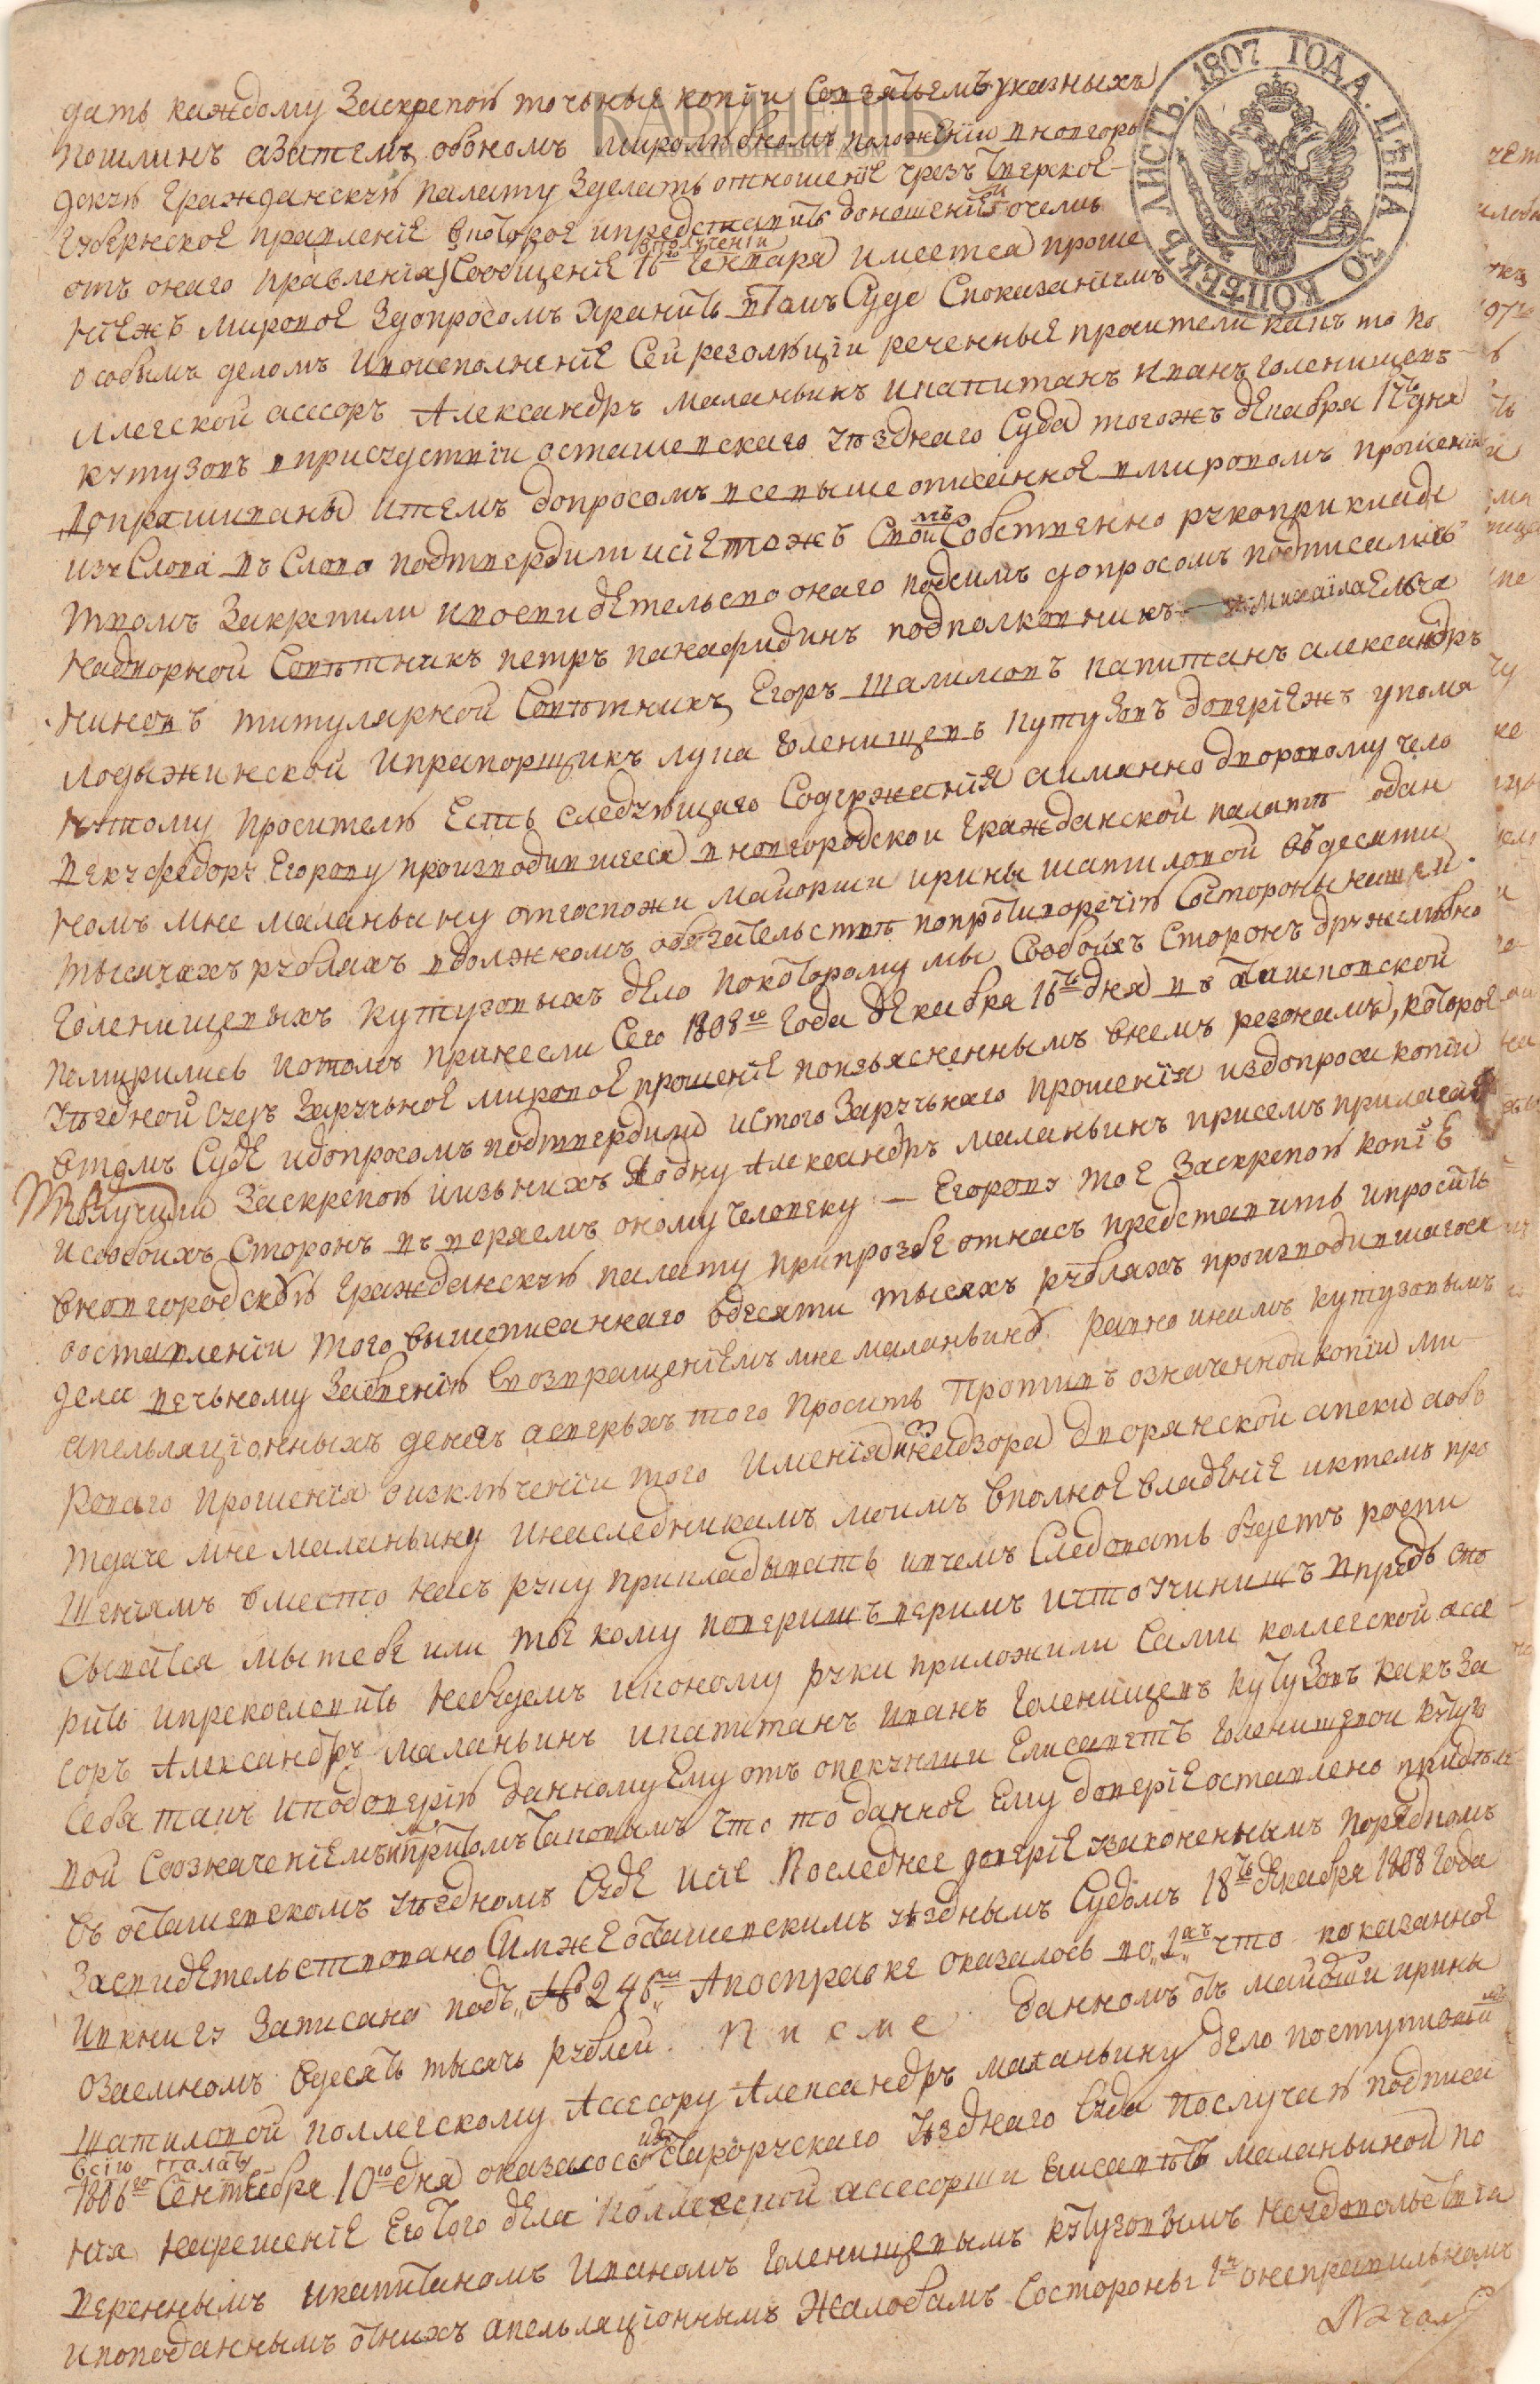 ЛИСТЪ. 1807 ГОДА. ЦѢНА 30 КОПѢЕКЪ
КАБИНЕТЪ
АУКЦИОННЫЙ ДОМ
дать каждому Заскрепою точныя копіи Совзятьемъ указныхъ
пошлинъ азатемъ обономъ миролюбномъ положеніи вновгоро
дскую Гражданскую палату Зделать отношеніе чрезъ тверское
Губернское правленіе вкоторое ипредставить донешеніем очемъ
отъ онаго правленія Сообщеніе вполученіи 16го Генваря имеется проше
ніежъ мировое Здопросомъ хранить втомъ Суде Споказаніемъ
особымъ деломъ ивоисполненіе Сей резолюціи реченныя просители какъ то ко
ллегской асессоръ Александръ маланьинъ икапитанъ иванъ голенищевъ
кутузовъ вприсудствіи осташевскаго уезднаго Суда тогожъ декабря 17го дня
допрашиваны итемъ допросомъ все выше описанное вмировомъ прошеніи
изъ Слова въ Слово подтвердили исіе тожъ Своимъ Собственно рукоприкладс
твомъ Закрепили ивосвидетельство онаго подсимъ допросомъ подписались
надворной Советникъ петръ панафидинъ подполковникъ михаила Ельча
ниновъ титулярной Советникъ Егоръ шалимовъ капитанъ александръ
лодыжинской ипрапорщикъ лука голенищевъ кутузовъ довгріежъ упомя
нутому просителю Есть следующаго Содержанія аимянно дворовому чело
веку федору Егорову производившееся вновгородской гражданской палате одан
номъ мне маланьину отгоспожи маиорши ирины шатиловой вдесяти
тысячахъ рубляхъ вдолжномъ обязательстве попротиворечію Состороны нашей
Голенищевыхъ кутузовыхъ дело покоторому мы Собоихъ Сторонъ дружелюбно
помирились ивтомъ принесли Сего 1808го Года декабря 16го дня въ Осташковской
уездной Судъ Заручьное мировое прошеніе поизъясненнымъ внемъ резонамъ, которое
втомъ Суде идопросомъ подтвердили исътого Заручьнаго прошенія издопроса копіи
получили Заскрепою иизьнихъ Я одну Александръ маланьинъ присемъ прилагая
исобоихъ Сторонъ въверяемъ оному человеку — Егорову тое Заскрепою копіе
вновгородскую гражданскую палату припрозбе отнасъ представить ипросить
ооставленіи того вышеписаннаго вдесяти тысячахъ рубляхъ производившагося
дела вечьному Забвенію Свозвращеніемъ мне маланьину равно инимъ кутузовымъ
апельляціонныхъ денегъ асверьхъ того просить противъ означенной копіи ми
роваго прошенія оизключеніи того имения изнадзора дворянской опеки аобъ
тдаче мне маланьину инаследникамъ моимъ вполное владеніе иктемъ про
шеніямъ вместо насъ руку прикладывать ивчемъ Следовать будетъ роспи
сыватся мы тебе или ты кому повериш верим ичто учинишъ впредь спо
рить ипрекословить небудемъ иконому руки приложили Сами коллегской асе
соръ Александръ маланьинъ икапитанъ иванъ голенищевъ кутузовъ какъ За
Себя такъ иподоверію данному Ему отъ опекунши Елисаветъ Голенищевой кутузо
вой Созначеніемъ притомъ таковымъ что то данное Ему доверіе оставлено приделе
въ осташевскомъ уездномъ Суде исіе последнее доверіе узаконеннымъ порядкомъ
Засвидетельствовано Симже осташевскимъ уезднымъ Судомъ 18го декабря 1808 года
ивкнигу Записано подъ №246м Апосправке оказалось во 1хъ что показанное
озаемномъ вдесять тысячь рублей писме данномъ отъ маиорши ирины
шатиловой коллегскому Асессору Александръ маланьину дело поступило
всію палату
1806го Сентября 10го дня оказалось изъ Старорускаго Уезднаго Суда послучаю подписа
нія нарешеніе Его того дела коллегской ассесорши Елисаветъ маланьиной по
веренным икапитаномъ иваномъ голенищевымъ кутузовымъ неудовольствія
ипоподаннымъ отнихъ апельляціоннымъ жалобамъ Состороны 1й онеправильномъ